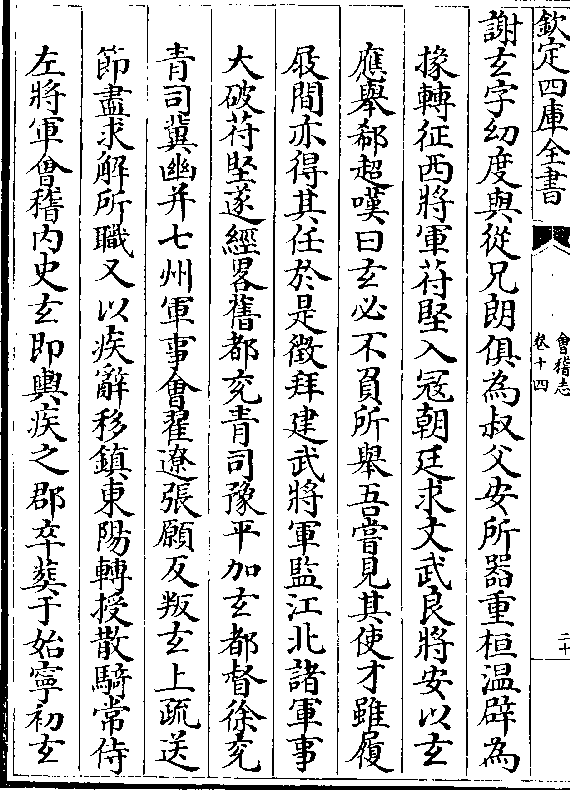 欽定四庫全書
會稽志
卷十四
二十
謝玄字幼度與從兄朗俱為叔父安所器重桓温辟為
掾轉征西將軍苻堅入冦朝廷求文武良將安以玄
應舉郄超嘆曰玄必不負所舉吾嘗見其使才雖履
屐間亦得其任於是徵拜建武將軍監江北諸軍事
大破苻堅遂經畧舊都兖青司豫平加玄都督徐兖
青司冀幽并七州軍事會翟遼張願反叛玄上疏送
節盡求解所職又以疾辭移鎮東陽轉授散騎常侍
左將軍會稽内史玄即輿疾之郡卒葬于始寧初玄